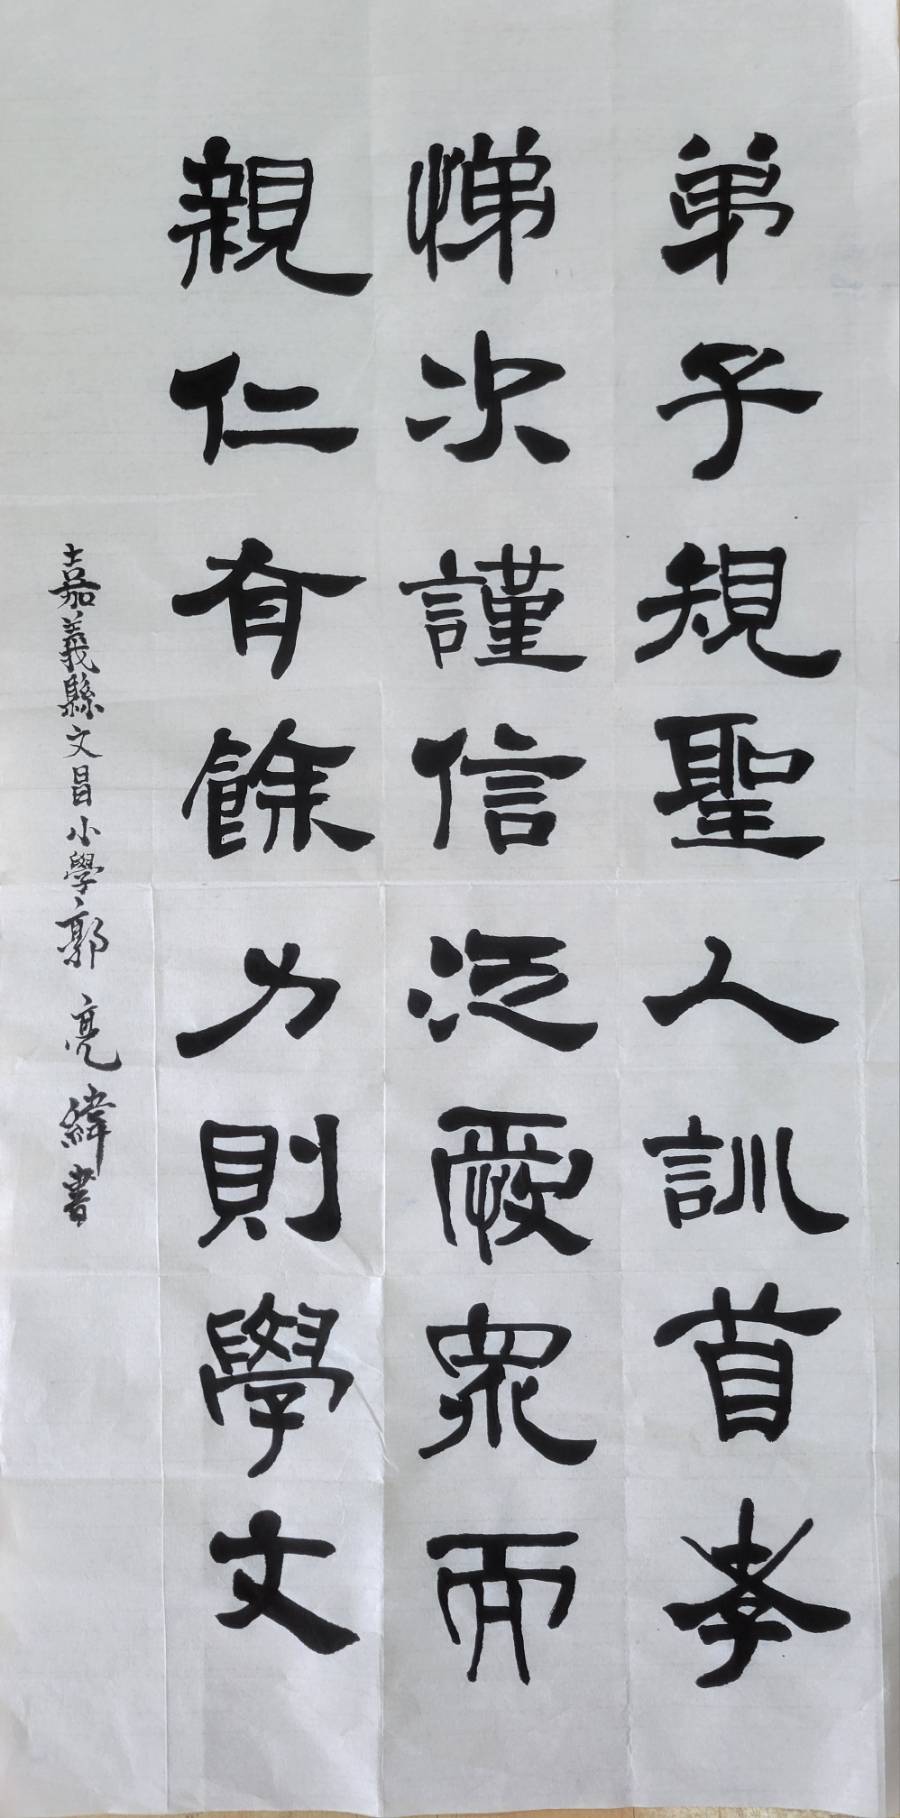 弟子規聖人訓首孝
悌次謹信泛愛眾而
親仁有餘力則學文
嘉義縣文昌小學郭亮緯書